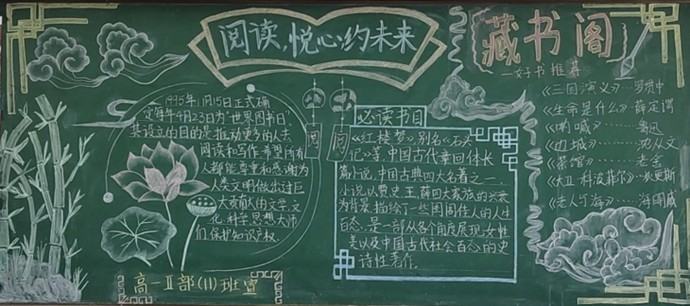 阅读,悦心约未来
1995年11月15日正式确
定每年4月23日为“世界图书日”
其设立的目的是推动更多的人去
阅读和写作,希望所有
人都能尊重和感谢为
人类文明做出过巨
大贡献人的文学,文
化,科学思想大师
们,保护知识产权.
高一Ⅱ部(11)班宣
阅
阅
必读书目
《红楼梦》,别名《石头
记》等,中国古代章回体长
篇小说,中国古典四大名著之一.
小说以贾史王薛四大家族的兴衰
为背景,描绘了一些闺阁佳人的人生
百态,是一部从各个角度展现女性
美以及中国古代社会百态的史
诗性著作.
藏书阁
—好书推荐
《三国演义》—罗贯中
《生命是什么》薛定谔
《呐喊》—鲁迅
《边城》—沈从文
《茶馆》—老舍
《大卫·科波菲尔》—狄更斯
《老人与海》—海明威